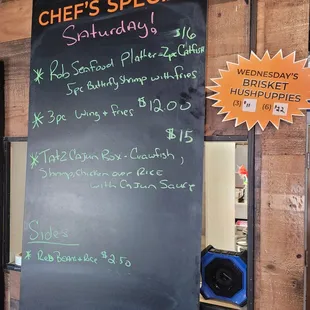 CHEF'S SPECI
Saturday!
* Rob Seafood Platter - 2pc Catfish $16
5pc Butterfly Shrimp with fries
* 3pc Wing + fries $12.00
$15
* Tatz Cajun Box - Crawfish,
Shrimp, Chicken over Rice
with Cajun Sauce
Sides
* Red Beans + Rice $2.50
WEDNESDAY'S
BRISKET
HUSHPUPPIES
(3) (6)